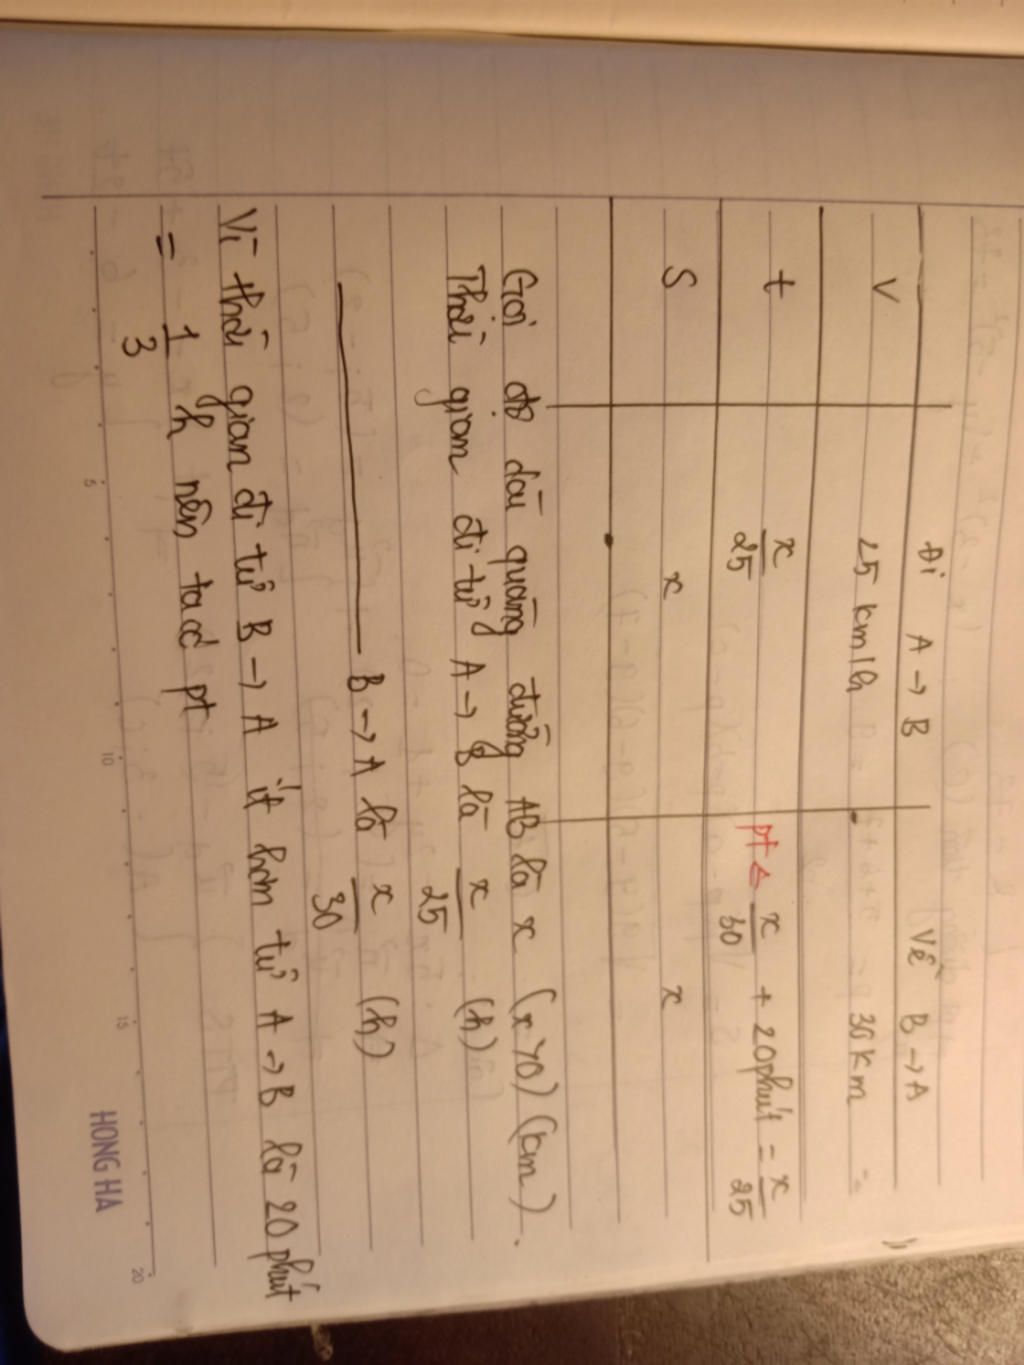 Đi A → B Về B → A
V 25 km/h 30 km
t x/25 pt ← x/30 + 20 phút = x/25
S x x
Gọi độ dài quãng đường AB là x (x > 0) (km).
Thời gian đi từ A → B là x/25 (h)
B → A là x/30 (h)
Vì thời gian đi từ B → A ít hơn từ A → B là 20 phút
= 1/3 h nên ta có pt
5 10 15 20
HONG HA